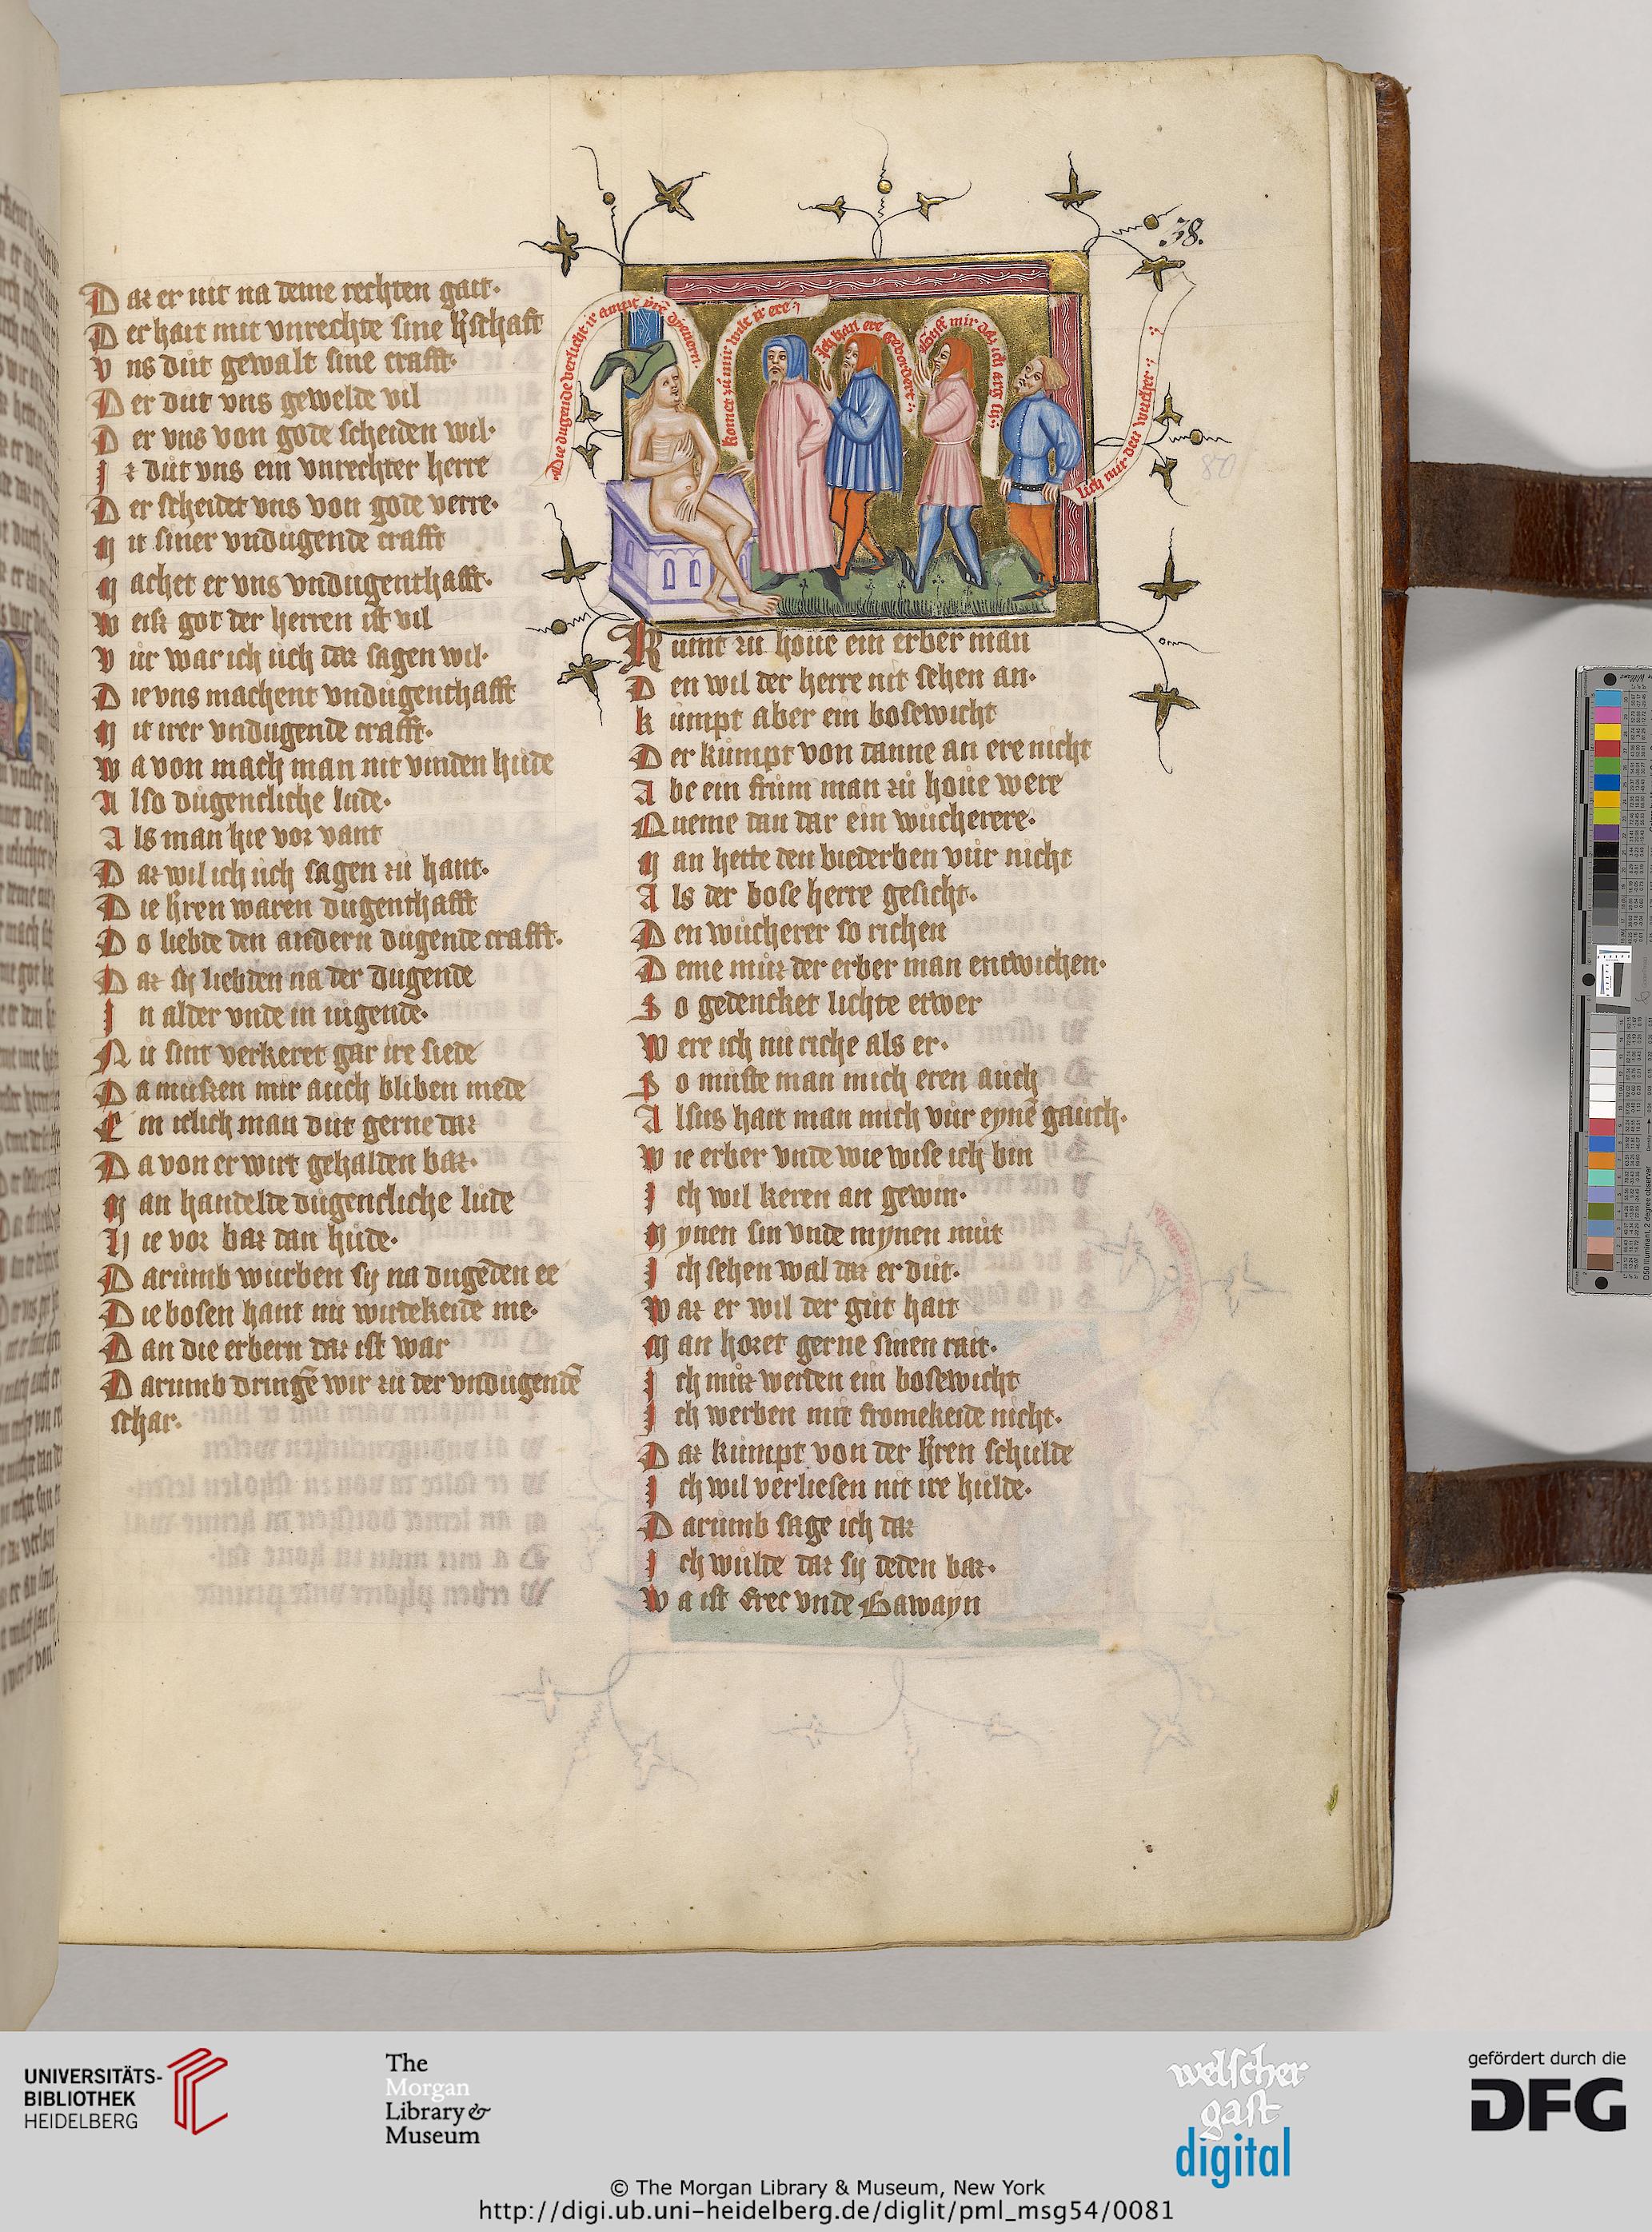 38.
80
Die dugende verlicht ir ampt
komet zu mir wilt ir ere
Ich han ere gevordert
hilff mir daz ich erg sij
lich mir den wucher
Daz er nit na deme rechten gatt·
Der hait mit vnrechte sine h̄schafft
Vns dut gewalt sine crafft·
Der dut vns gewelde vil
Der vns von gode scheiden wil·
Iz dut vns ein vnrechter herre
Der scheidet vns von gode verre·
Mit siner vndugende crafft
Machet er vns vndugenthafft·
Weiß got der herren ist vil
Vur war ich uch daz sagen wil·
Die vns machent vndugenthafft
Mit irer vndugende crafft·
Wa von mach man nit vinden hude
Also dugentliche lude·
Als man hie vor vant
Daz wil ich uch sagen zu hant·
Die h̄ren waren dugenthafft
Do liebte den andern dugende crafft·
Daz sij liebten na der dugende
In alder vnde in iugende·
Nu sint verkeret gar ire siede
Da mußen mir auch bliben mede
Ein iclich man dut gerne daz
Da von er wirt gehalden baz·
Man handelte dugentliche lude
Hie vor baz dan hude·
Darumb wurben sij na dugēden ee
Die bosen hant nu wirdekeide me·
Dan die erbern daz ist war
Darumb dringē wir zu der vndugendē
schar·
Kumt zu houe ein erber man
Den wil der herre nit sehen an·
Kumpt aber ein bosewicht
Der kumpt von danne an ere nicht
Abe ein frum man zu houe were
Queme dan dar ein wucherere·
Man hette den biederben vur nicht
Als der bose herre gesicht·
Den wucherer so richen
Deme muz der erber man entwichen·
So gedencket lichte etwer
Were ich nu riche als er·
So muste man mich eren auch
Alsus hait man mich vur eynē gauch·
Wie erber vnde wie wise ich bin
Ich wil keren an gewin·
Mynen sin vnde mynen mut
Ich sehen wal daz er dut·
Waz er wil der gut hait
Man horet gerne sinen rait·
Ich muz werden ein bosewicht
Ich werben mit fromekeide nicht·
Daz kumpt von der h̄ren schulde
Ich wil verliesen nit ire hulde·
Darumb sage ich daz
Ich wulde daz sij deden baz·
Wa ist Erec vnde Gawayn
UNIVERSITÄTS-
BIBLIOTHEK
HEIDELBERG
The
Morgan
Library &
Museum
welscher
gast
digital
gefördert durch die
DFG
© The Morgan Library & Museum, New York
http://digi.ub.uni-heidelberg.de/diglit/pml_msg54/0081